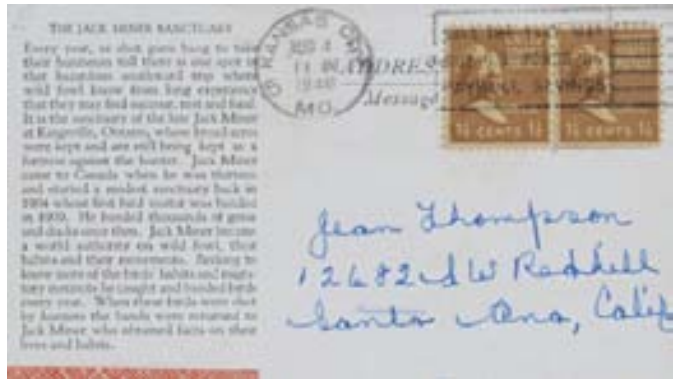 THE JACK MINER SANCTUARY
Every year, as shot guns bang to take
their huntsmen toll there is one spot in
that hazardous southward trip where
wild fowl know from long experience
that they may find succour, rest and food.
It is the sanctuary of the late Jack Miner
at Kingsville, Ontario, whose broad acres
were kept and are still being kept as a
fortress against the hunter. Jack Miner
came to Canada when he was thirteen
and started a modest sanctuary back in
1904 whose first bird visitor was banded
in 1909. He banded thousands of geese
and ducks since then. Jack Miner became
a world authority on wild fowl, their
habits and their movements. Seeking to
know more of the birds' habits and migra-
tory instincts he caught and banded birds
every year. When these birds were shot
by hunters the bands were returned to
Jack Miner who obtained facts on their
lives and habits.
KANSAS CITY
4
11
MO.
ADDRESS
Message
1½ CENTS 1½
1½ CENTS 1½
Jean Thompson
12682 W Redhill
Santa Ana, Calif